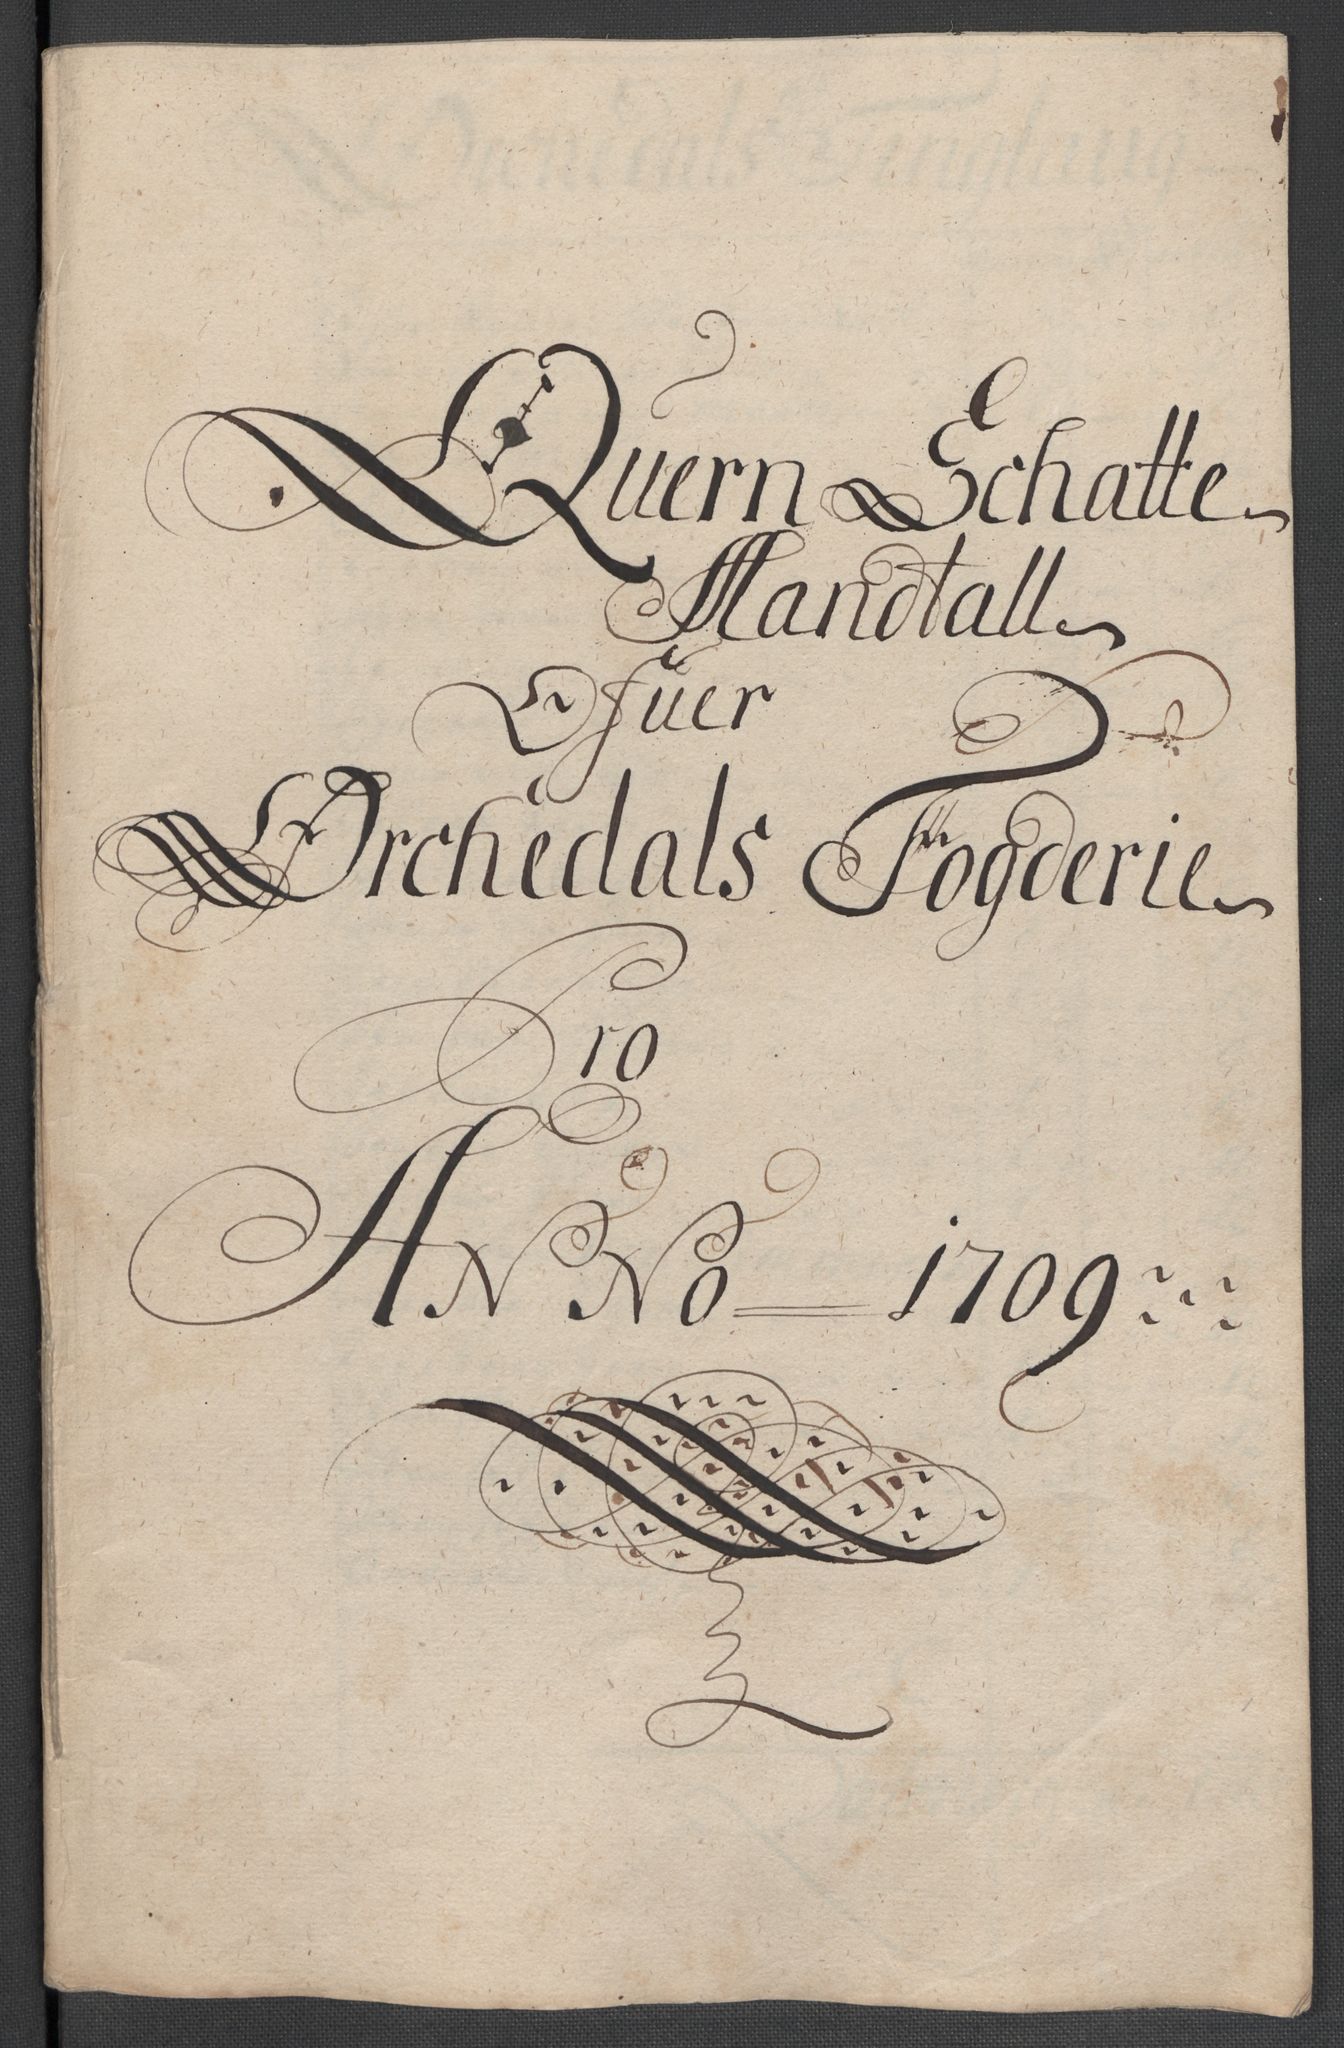 Quern Schatte
Mandtall
Ofuer
Orchedals Fogderie
Pro
ANNO 1709